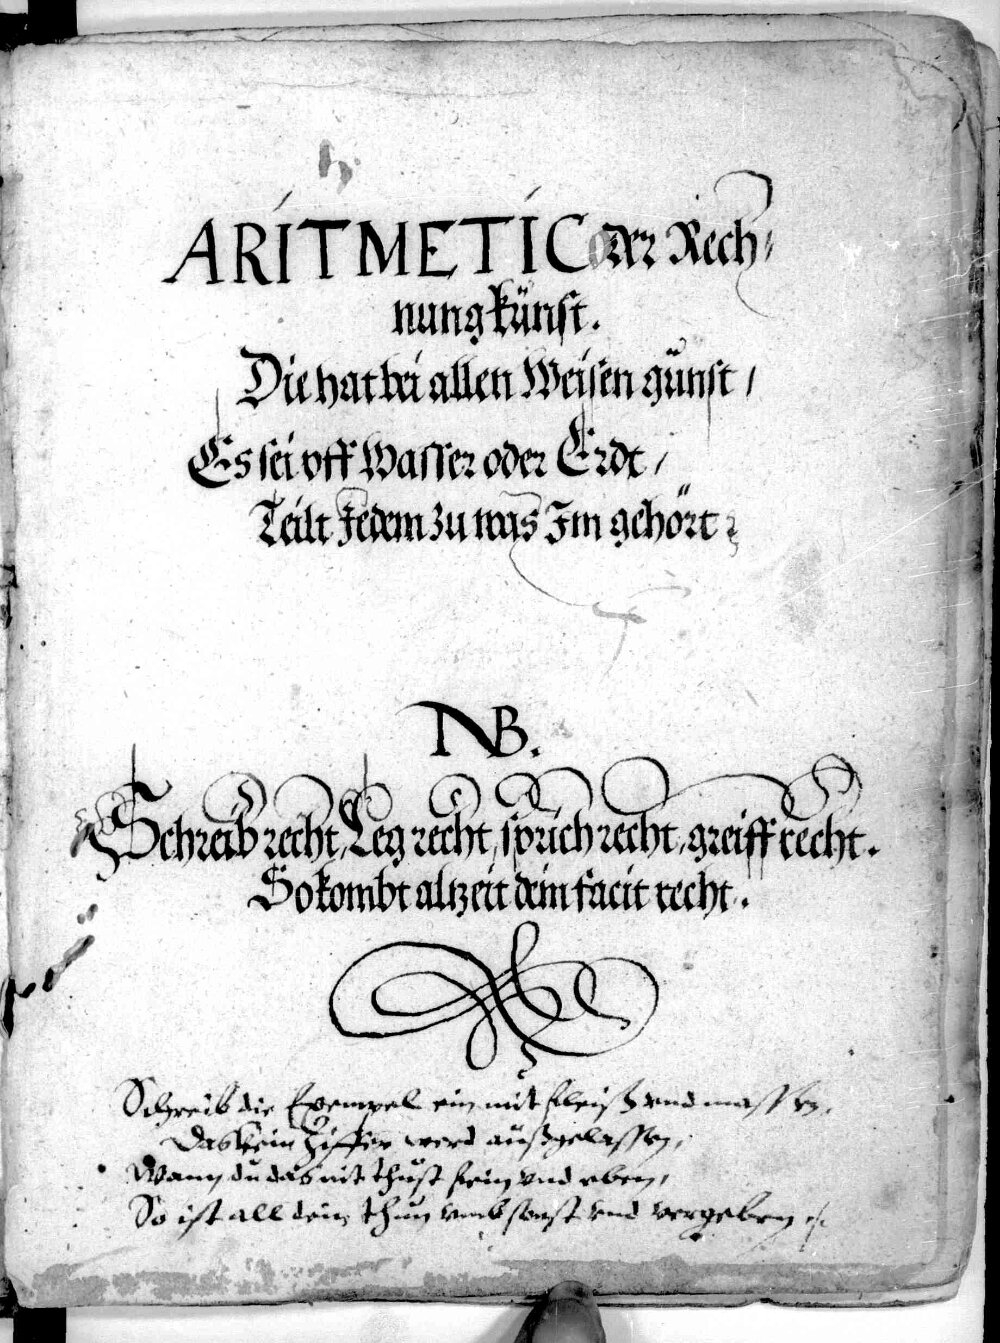 ARITMETIC oder Rech-
nung künst.
Die hat bei allen Weisen günst /
Es sei vff Wasser oder Erdt /
Teilt Jedem zu was Im gehört
NB.
Schreib recht, Leg recht, sprich recht, greiff recht.
So kombt altzeit dein facit recht.
Schreib die Exempel ein mit fleiß vnd massen,
Das kein Ziffer werd außgelassen,
Wann du das nit thust fein vnd eben,
So ist all dein thun vmb sonst vnd vergeben